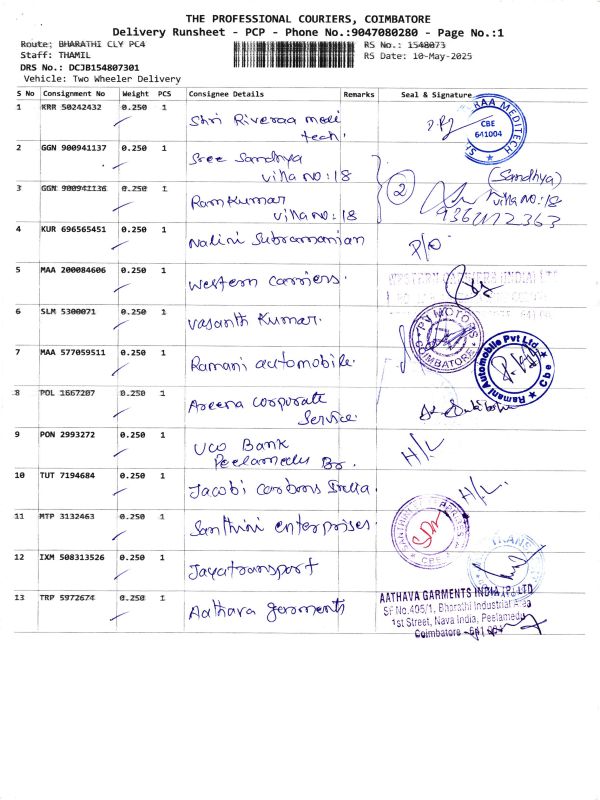 THE PROFESSIONAL COURIERS, COIMBATORE
Delivery Runsheet - PCP - Phone No.:9047080280 - Page No.:1
Route: BHARATHI CLY PC4 RS No.: 1548073
Staff: THAMIL RS Date: 10-May-2025
DRS No.: DCJB154807301
Vehicle: Two Wheeler Delivery
S No Consignment No Weight PCS Consignee Details Remarks Seal & Signature
1 KRR 50242432 0.250 1 Shri Riveraa medi tech.
CBE 641004
2 GGN 900941137 0.250 1 Sree Sandhya villa no: 18
3 GGN 900941136 0.250 1 Ramkumar villa no: 18
2 (Sandhya)
villa no: 18
4 KUR 696565451 0.250 1 Nalini Subramanian P/O
5 MAA 200084606 0.250 1 Western carriers.
WESTERN CARRIERS (INDIA) LTD
6 SLM 5300071 0.250 1 Vasanth Kumar.
PV MOTORS COIMBATORE
7 MAA 577059511 0.250 1 Ramani automobile.
Ramani Automobile Pvt Ltd. Cbe
8 POL 1667207 0.250 1 Aseena corporate Service.
9 PON 2993272 0.250 1 UCO Bank Peelamedu Br. H/L
10 TUT 7194684 0.250 1 Jacobi carbons India. H/L.
11 MTP 3132463 0.250 1 Santhini enterprises.
CBE
12 IXM 508313526 0.250 1 Jayatransport
TRANS
13 TRP 5972674 0.250 1 Aathava garments
AATHAVA GARMENTS INDIA (P) LTD
SF No.405/1, Bharathi Industrial Area
1st Street, Nava India, Peelamedu
Coimbatore - 641 004